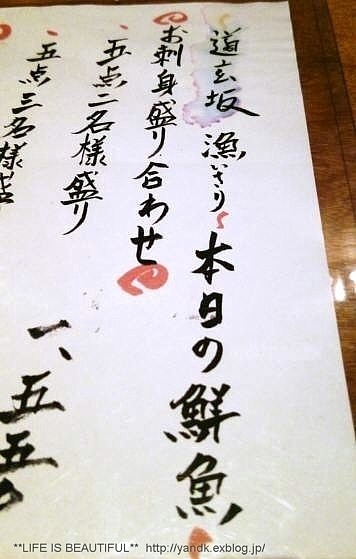 道玄坂 漁いさり 本日の鮮魚
お刺身盛り合わせ
、五点二名様盛り
、五点三名様
一、五五
**LIFE IS BEAUTIFUL** http://yandk.exblog.jp/